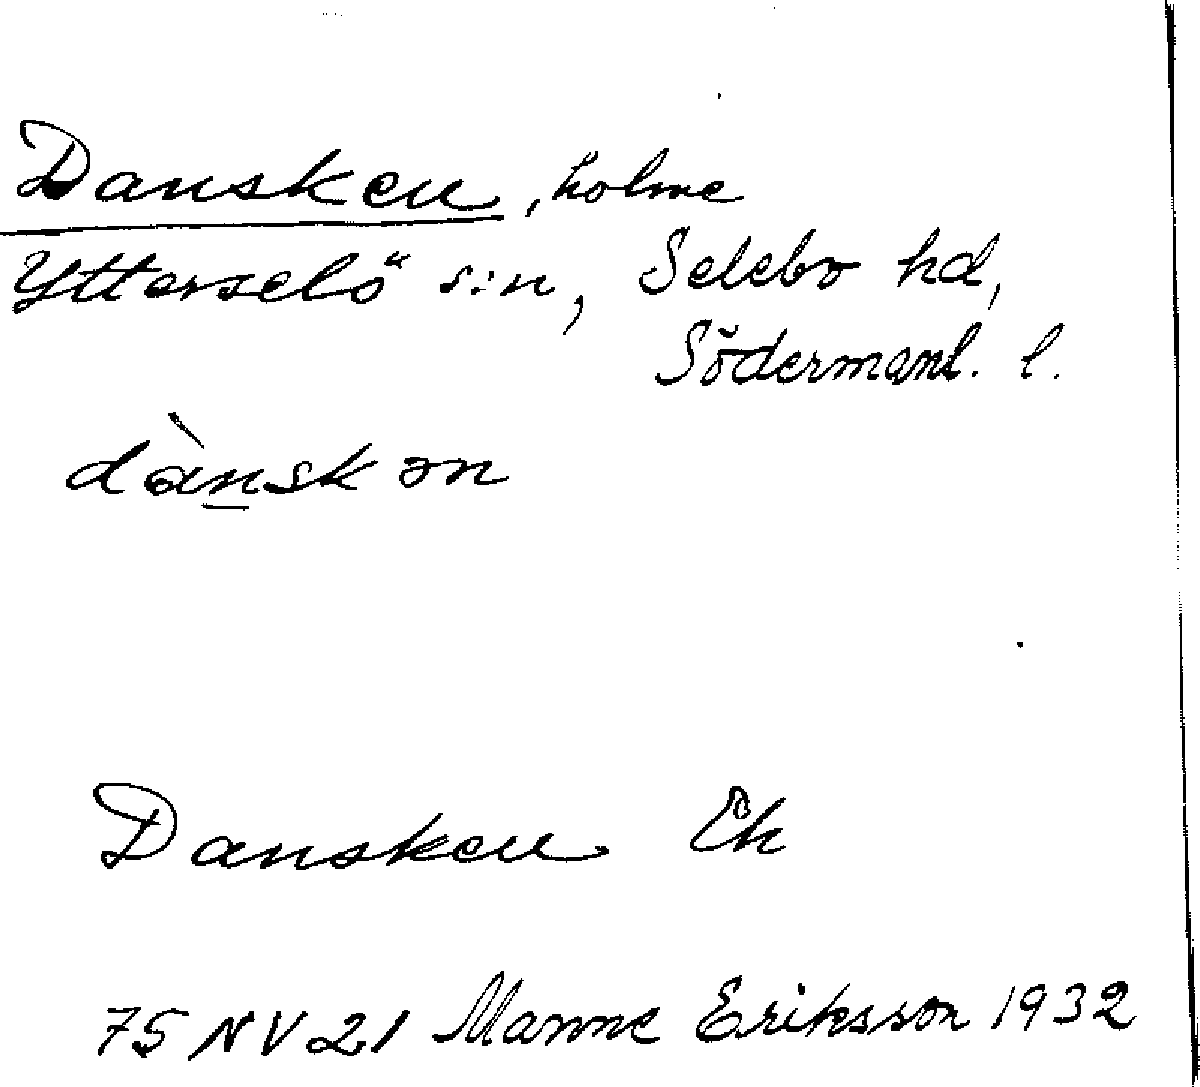 Dansken, holme
Ytterselö s:n, Selebo hd,
Södermanl. l.
dànskən
Dansken Ek
75 NV 21 Manne Eriksson 1932